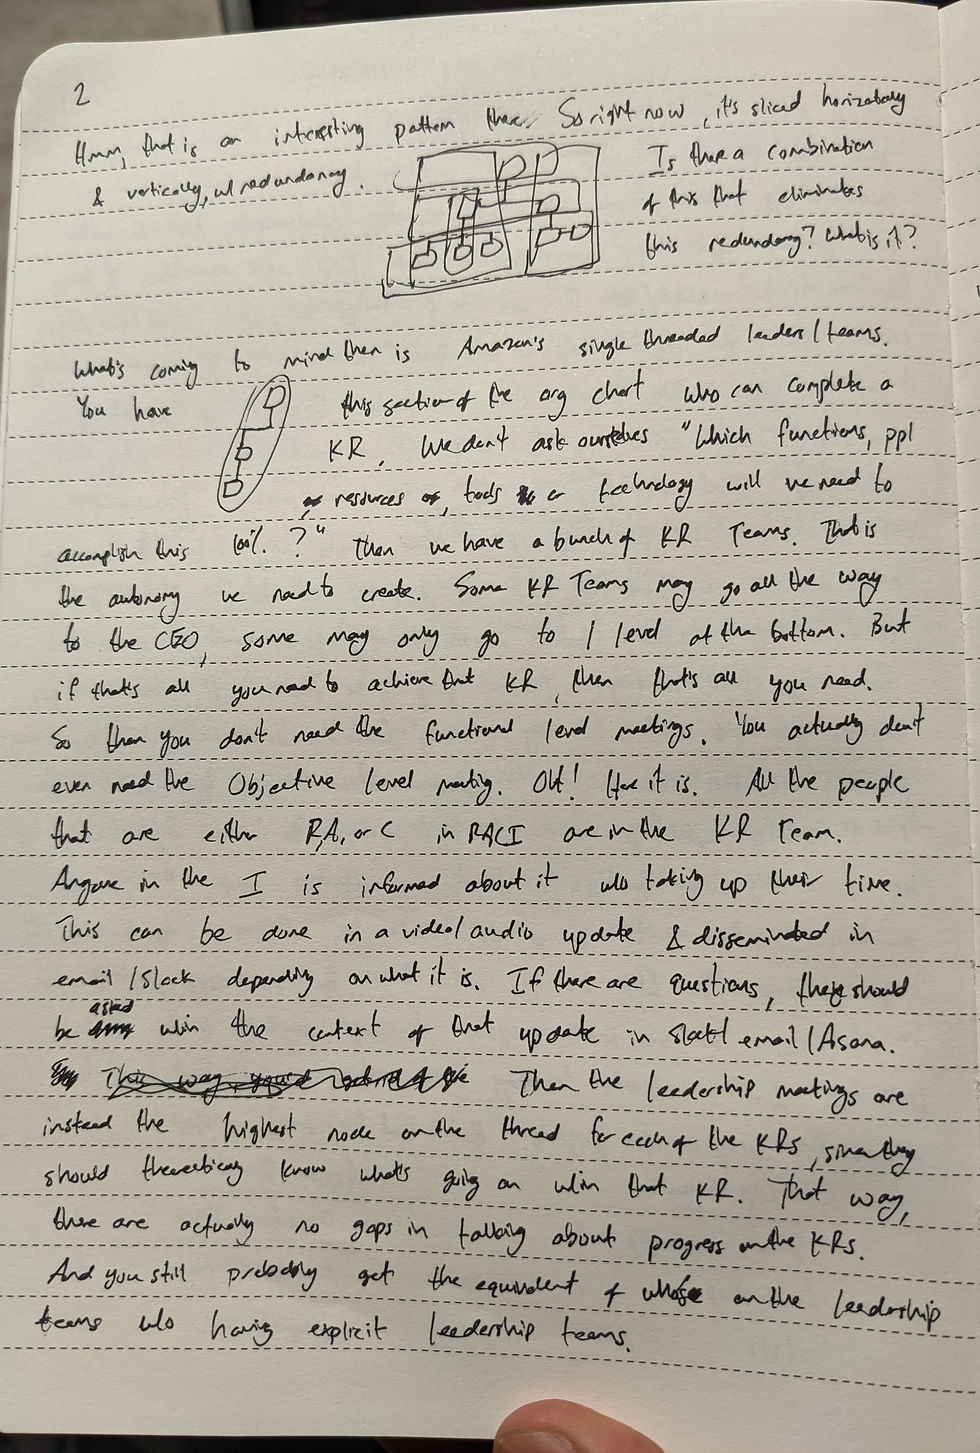 2
Hmm, that is an interesting pattern there. So right now, it's sliced horizontally
& vertically, w/ redundancy.
Is there a combination
of this that eliminates
this redundancy? What is it?
What's coming to mind then is Amazon's single threaded leaders/teams.
You have this section of the org chart who can complete a
KR. We don't ask ourselves "Which functions, ppl
resources, tools or technology will we need to
accomplish this 100%?" Then we have a bunch of KR Teams. That is
the autonomy we need to create. Some KR Teams may go all the way
to the CEO, some may only go to 1 level at the bottom. But
if that's all you need to achieve that KR, then that's all you need.
So then you don't need the functional level meetings. You actually don't
even need the Objective level meeting. Oh! Here it is. All the people
that are either R,A, or C in RACI are in the KR Team.
Anyone in the I is informed about it w/o taking up their time.
This can be done in a video/audio update & disseminated in
email/Slack depending on what it is. If there are questions, they should
be asked w/in the context of that update in Slack/email/Asana.
Then the leadership meetings are
instead the highest node on the thread for each of the KRs, since they
should theoretically know what's going on w/in that KR. That way,
there are actually no gaps in talking about progress on the KRs.
And you still probably get the equivalent of who's on the leadership
teams w/o having explicit leadership teams.